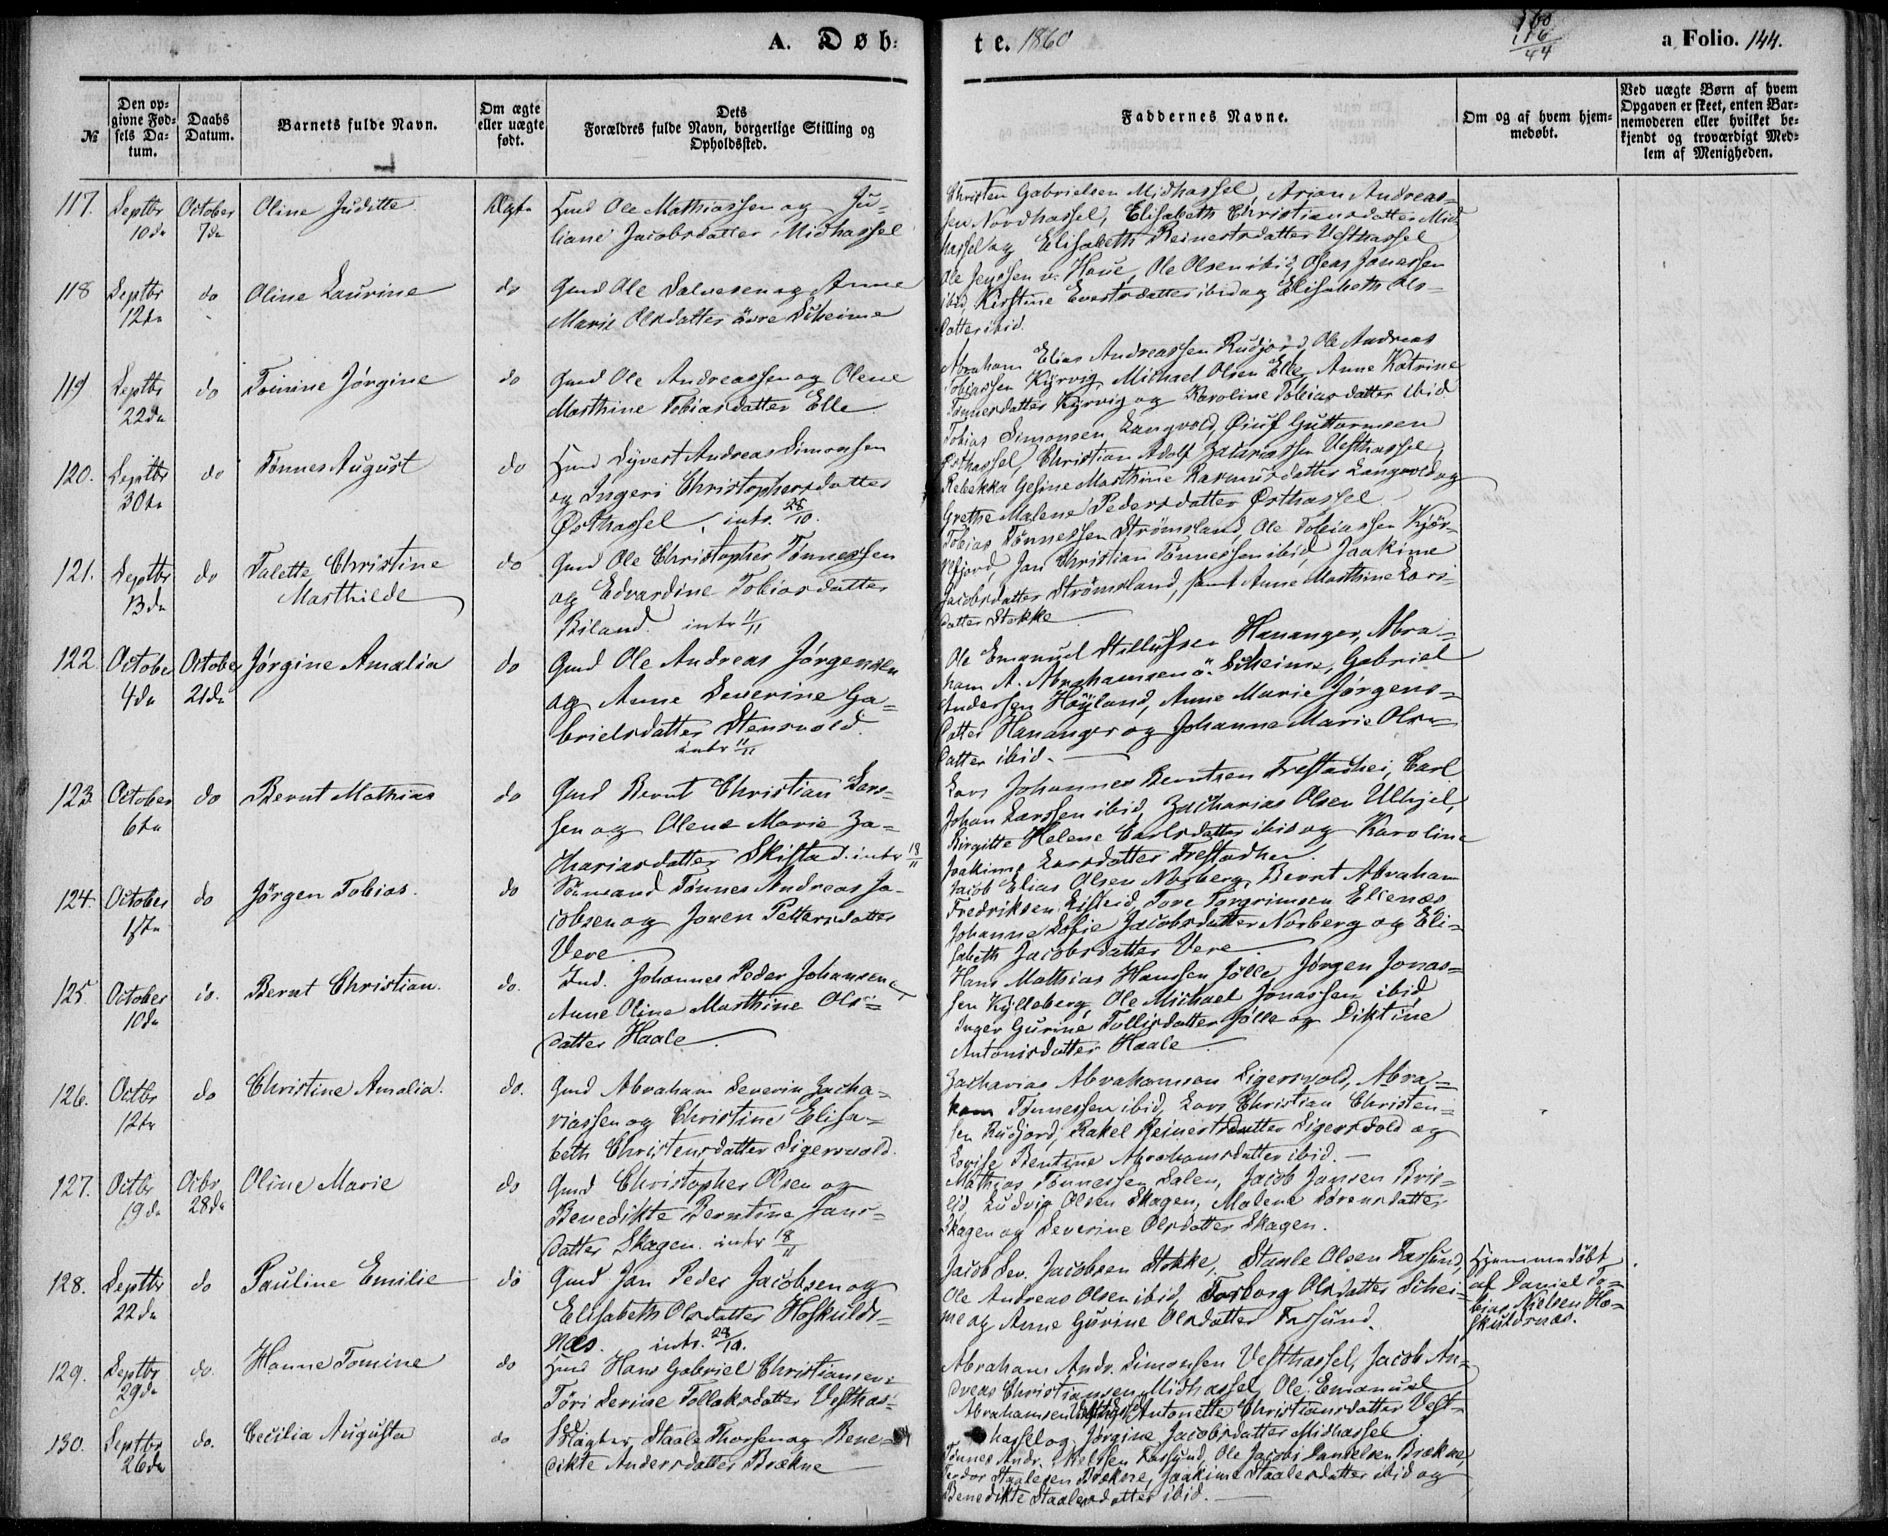 A. Døb=
te. 1860
160
116
44
a Folio. 144.
№
Den op=
givne Fød=
sels Da=
tum.
Daabs
Datum.
Barnets fulde Navn.
Om ægte
eller uægte
født.
Dets
Forældres fulde Navn, borgerlige Stilling og
Opholdssted.
Faddernes Navne.
Om og af hvem hjem=
medøbt.
Ved uægte Børn af hvem
Opgaven er skeet, enten Bar=
nemoderen eller hvilket be=
kjendt og troværdigt Med=
lem af Menigheden.
117. Septbr 10de October 7de Oline Juditte Ægte
Ole Mathiassen og Ju=
liane Jacobsdatter Midhassel
Christen Gabrielsen Midhassel, Arian Andreas=
sen Nordhassel, Elisabeth Christiansdatter Mid
hassel og Elisabeth Reinertsdatter Vesthassel
118 Septbr 12te do Oline Laurine do
Gmd Ole Salvesen og Anne
Marie Olsdatter övre Scheime
Ole Jenssen v. Haue, Ole Olsen ibid, Oseas Jonassen
ibid, Kirstine Evertsdatter ibid og Elisabeth Ols=
datter ibid.
119 Septbr 22de do Tomine Jørgine do
Gmd Ole Andreassen og Olene
Marthine Tobiasdatter Elle
Abraham Elias Andreassen Rudjord, Ole Andreas
Tobiassen Kyrvig, Michael Olsen Elle, Anne Katrine
Tønnesdatter Kyrvig og Karoline Tobiasdatter ibid
120. Septbr 30te do Tønnes August do
Syvert Andreas Simonsen
og Ingeri Christophersdatter
Østhassel, intr. 28/10.
Tobias Simonsen Langvold, Guttormsen
Østhassel, Christian Adolf Zakariassen Vesthassel,
Rebekka Gesine Marthine Rasmusdatter Langvold og
Grethe Malene Pedersdatter Østhassel
121. Septbr 13de do Talette Christine
Marthilde do
Gmd Ole Christopher Tønnessen
og Edvardine Tobiasdatter
Biland. intr 11/11
Tobias Tønnessen Strømsland, Ole Tobiassen Kjør=
refjord, Jan Christian Tønnessen ibid, Joakime
Jacobsdatter Strømsland, samt Anne Marthine Lars=
datter Stokke
122. October 4de October 21de Jørgine Amalia do
Gmd Ole Andreas Jørgensen
og Anne Severine Ga=
brielsdatter Stensvold.
intr 11/11
Ole Emanuel Hananger, Abra=
ham A. Abrahamsen ö. Scheime, Gabriel
Andersen Høyland, Anne Marie Jørgens=
datter Hananger og Johanne Marie Ols=
datter ibid.
123. October 6te do Bernt Mathias do
Gmd Bernt Christian Lars=
sen og Olene Marie Za=
chariasdatter Skistad. intr 18/11
Lars Johannes Berntsen Frestadhei, Carl
Johan Larssen ibid, Zacharias Olsen Ulhjel,
Birgitte Helene Carlsdatter ibid og Karoline
Joakime Larsdatter Frestadhei.
124. October 1ste do Jörgen Tobias. do
Sömand Tønnes Andreas Ja=
cobsen og Joren Pettersdatter
Vere
Jacob Elias Olsen Norberg, Bernt Abraham
Fredriksen Listeid, Tore Torgrimsen Ellenæs
Johanne Sofie Jacobsdatter Norberg og Eli=
sabeth Jacobsdatter Vere
125. October 10de do. Bernt Christian. do.
Ind. Johannes Peder Johansen &
Anne Oline Marthine Ols=
datter Haale
Hans Mathias Hanssen Jølle, Jørgen Jonas=
sen Kylleberg, Ole Michael Jonassen ibid
Inger Gurine Tollisdatter Jølle og Diktine
Antonisdatter Haale
126. Octbr 12te do Christine Amalia. do.
Gmd Abraham Severin Zacha=
riassen og Christine Elisa=
beth Christensdatter Sigersvold.
Zacharias Abrahamsen Sigersvold, Abra=
ham Tønnessen ibid, Lars Christian Christen=
sen Rudjord, Rakel Reinertsdatter Sigersvold og
Lovise Bentine Abrahamsdatter ibid.
127. Octbr 19de Octbr 28de Oline Marie do
Gmd Christopher Olsen og
Benedikte Berntine Jans=
datter Skagen. intr 18/11
Mathias Tønnessen Dalen, Jacob Jansen Bris=
lid, Ludvig Olsen Skagen, Malene Sørensdatter
Skagen og Severine Olsdatter Skagen.
128. Septbr 22de do Pauline Emilie do
Gmd Jan Peder Jacobsen og
Elisabeth Olsdatter Høskulds=
næs. intr. 28/10.
Jacob Sev. Jacobsen Stokke, Staale Olsen Farsund,
Ole Andreas Olsen ibid, Torborg Olsdatter Schei=
me og Anne Gurine Olsdatter Farsund.
Hjemmedöbt
af Daniel To=
bias Nielsen Hø=
skuldsnæs.
129. Septbr 29de do. Hanne Tomine do
Hans Gabriel Christiansen &
Töri Serine Tollaksdatter Vesthas=
sel
Abraham Andr. Simonsen Vesthassel, Jacob An=
dreas Christiansen Midhassel, Ole Emanuel
Abrahamsen Vesthassel, Antonette Christiansdatter Vest=
hassel og Jørgine Jacobsdatter Midhassel
130. Septbr 26de do. Cecilia Augusta do
Slagter Staale Thorsen og Bene=
dikte Andersdatter Brekne
Tönnes Andr. Nielsen Farsund, Ole Jacob Danielsen Brekne,
Staalesen Brekne, Joakime Staalesdatter ibid og
Benedikte Staalesdatter ibid.